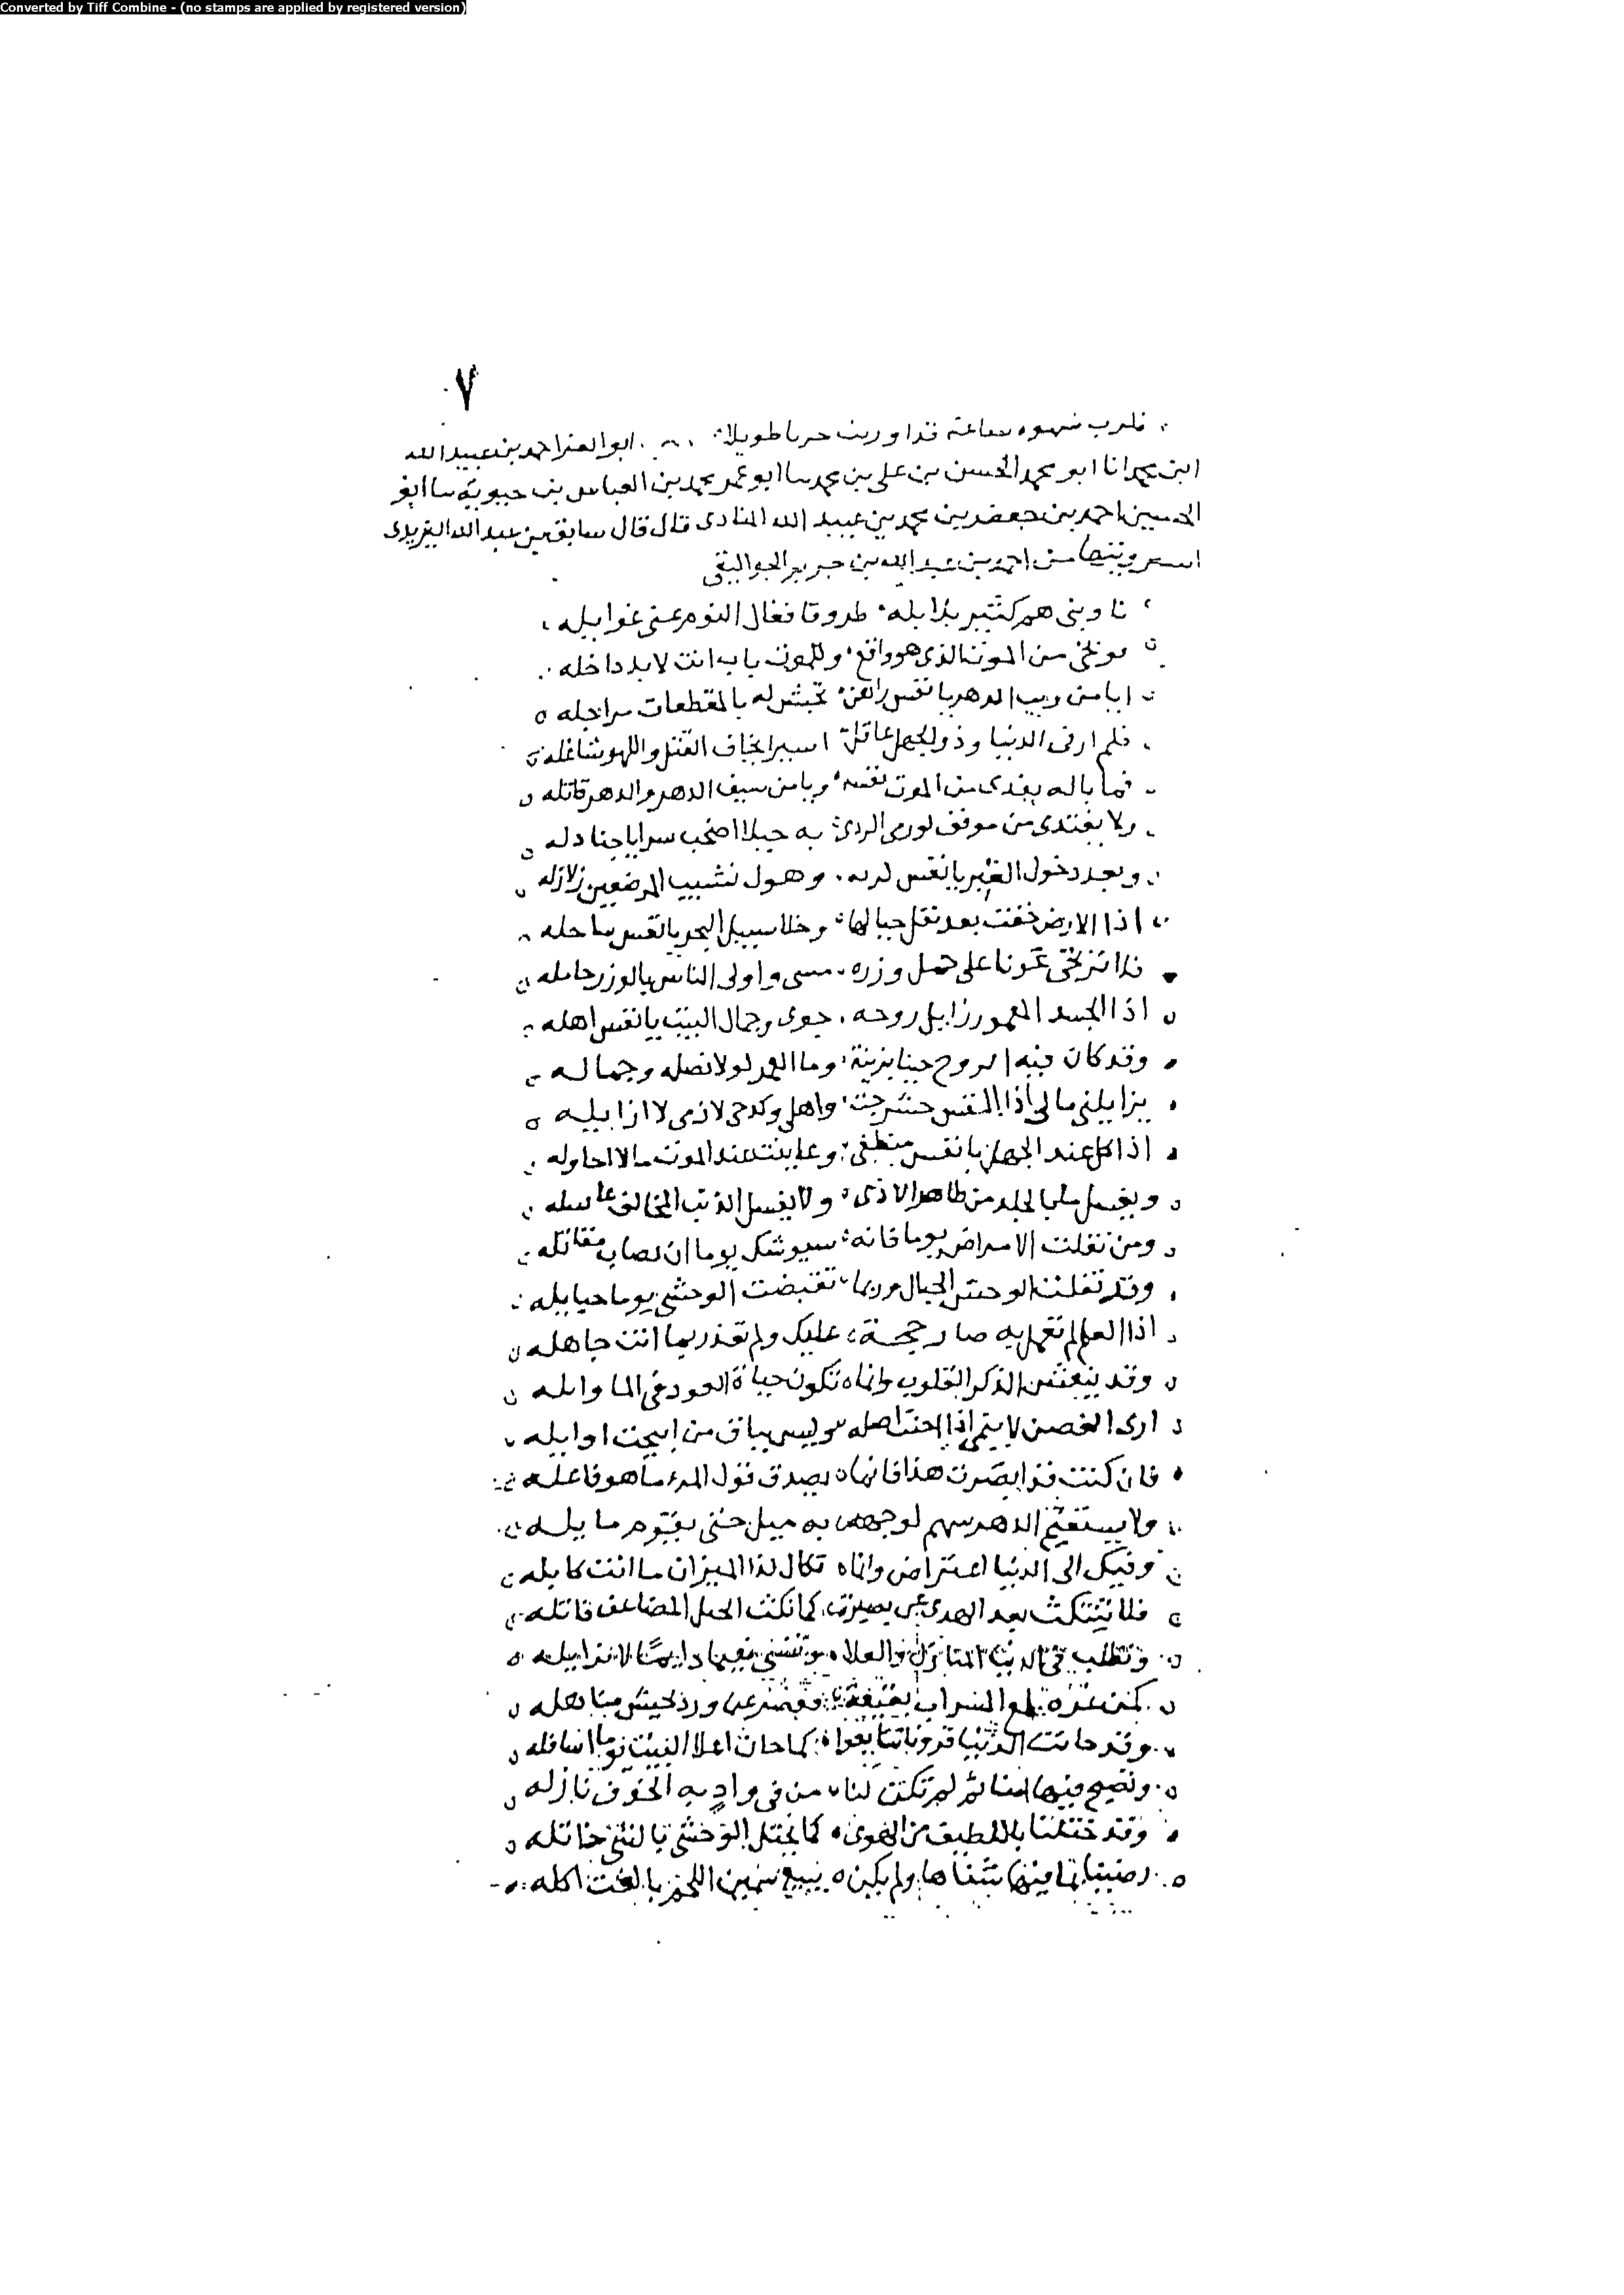 Converted by Tiff Combine - (no stamps are applied by registered version)
٧
فلرب شهوه ساعة قد اورثت حزنا طويلا ابو العز احمد بن عبيد الله
ابن محمد انا ابو محمد الحسن بن علي بن محمد سا ابو عمر محمد بن العباس بن حيويه سا ابو
الحسين احمد بن جعفر بن محمد بن عبيد الله المنادى قال قال سابق بن عبد الله البربدى
من احمد بن عبد الله بن جرير الجواليقى
تاوبنى هم كثير بلابله طروقا فغال النوم عنى غوايله
من الموت الذى هو واقع وللموت باب انت لابد داخله
ايامن ريب الدهر يا نفس راهن تجيش له بالمقطعات مراجله
فلم ار فى الدنيا وذو الجهل غافل اسيرا يخاف القتل واللهو شاغله
فما باله يفدى من الموت نفسه ويامن سيف الدهر والدهر قاتله
ولا يفتدى من موقف لو رمى الردى به جبلا اضحت سرابا جنادله
وبعد دخول القبر يا نفس كربه وهول تشيب المرضعين زلازله
اذا الارض خفت بعد نقل جبالها وخلا سبيل البحر يا نفس ساحله
فلا ترتجى عونا على حمل وزره مسى واولى الناس بالوزر حامله
اذا الجسد المعمور زايل روحه خوى وجمال البيت يا نفس اهله
وقد كان فيه الروح حينا يزينه وما الغمد لولا نصله وجماله
يزايلنى مالى اذا النفس حشرجت واهلى وكدحى لازمى لا ازايله
اذا كل عند الجهل يا نفس منطقى وعاينت عند الموت ما لا احاوله
ويغسل ما بالجلد من ظاهر الاذى ولا يغسل الذنب المخالف غاسله
ومن تفلت الامراض يوما فانه سيوشك يوما ان تصاب مقاتله
وقد تفلت الوحش الحبال وربما تقبضت الوحشى يوما حبايله
اذا العلم لم تعمل به صار حجة عليك ولم تعذر بما انت جاهله
وقد ينعش الذكر القلوب وانما تكون حياة العود فى الما وابله
ارى الغصن لا ينمى اذا اجتث اصله وليس بباق من ابيحت اوايله
فان كنت قد ابصرت هذا فانما يصدق قول المرء ما هو فاعله
ولا يستقيم الدهر سهم لوجهه به ميل حتى يقوم مايله
وفيك الى الدنيا اعتراض وانما تكال لذا الميزان ما انت كايله
فلا تنتكث بعد الهدى عن بصيرة كما نكث الحبل المضاعف فاتله
وتطلب فى الدنيا المنازل والعلا وتنسى نعيما دايما لا تزايله
كمن غره لمع السراب بقيعة فقصر عن ورد تجيش مناهله
وقد خانت الدنيا قرونا تتابعوا كما خان اعلا البيت يوما اسافله
وتصبح فيها امنا ثم لم تكن لتامن فى واد به الخوف نازله
وقد ختلتنا باللطيف من الهوى كما يختل الوحشى بالشى خاتله
رضينا بما فيها سفاها ولم يكن يبيع سمين اللحم بالغث اكله